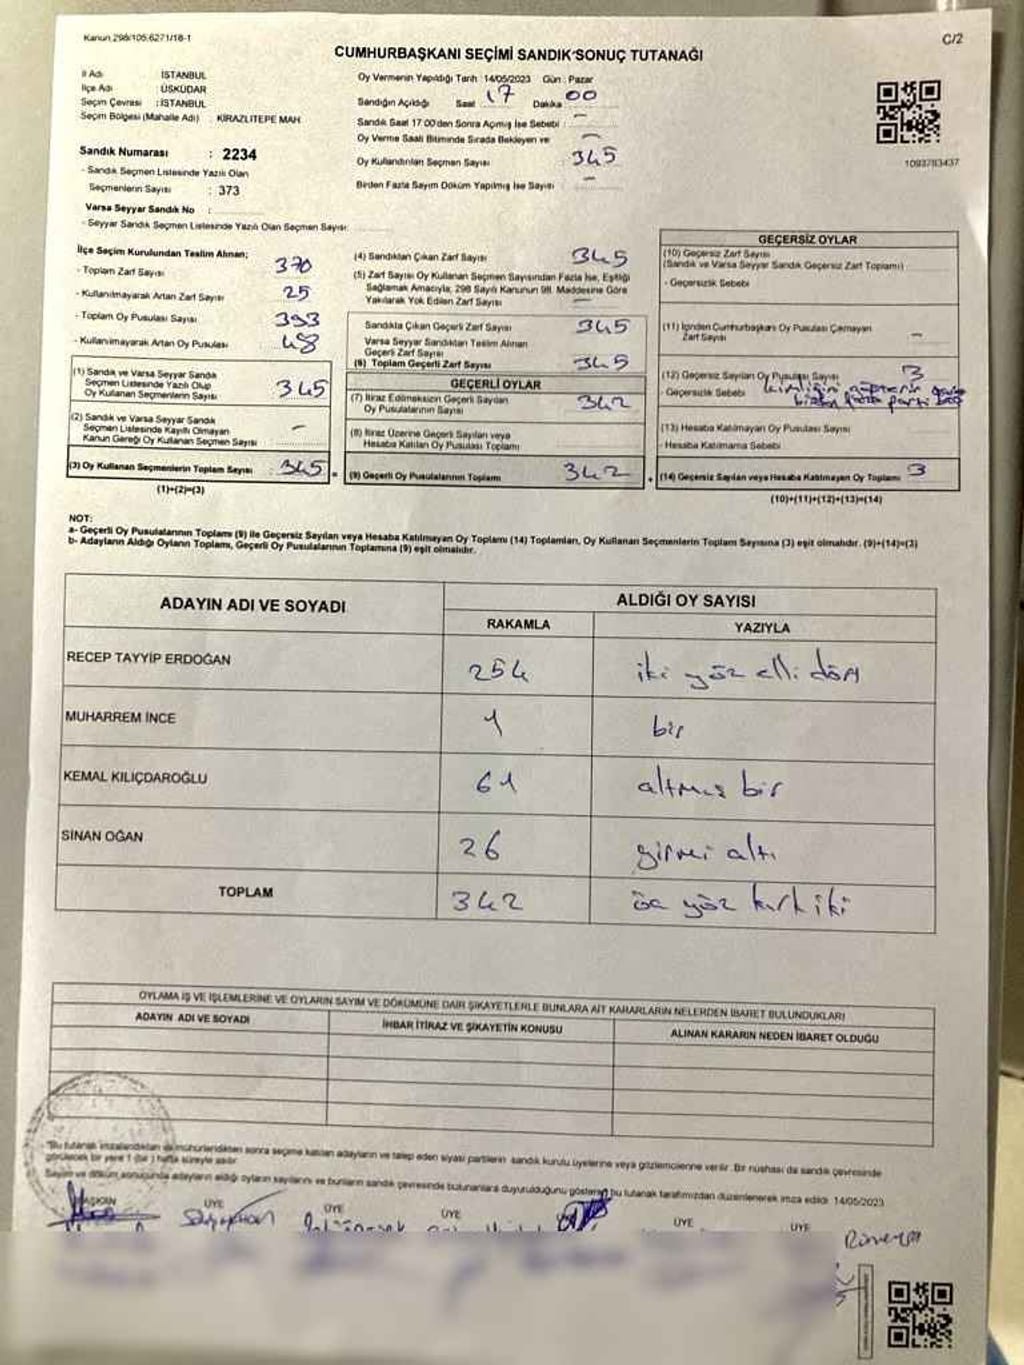 Kanun 298/105,6271/18-1
C/2
CUMHURBAŞKANI SEÇİMİ SANDIK SONUÇ TUTANAĞI
İl Adı : İSTANBUL
İlçe Adı : ÜSKÜDAR
Seçim Çevresi : İSTANBUL
Seçim Bölgesi (Mahalle Adı) : KİRAZLITEPE MAH.
Sandık Numarası : 2234
- Sandık Seçmen Listesinde Yazılı Olan
Seçmenlerin Sayısı : 373
Varsa Seyyar Sandık No :
- Seyyar Sandık Seçmen Listesinde Yazılı Olan Seçmen Sayısı:
Oy Vermenin Yapıldığı Tarih : 14/05/2023 Gün : Pazar
Sandığın Açıldığı Saat 17 Dakika 00
Sandık Saat 17.00'den Sonra Açmış İse Sebebi : -
Oy Verme Saati Bitiminde Sırada Bekleyen ve -
Oy Kullandırılan Seçmen Sayısı : 345
Birden Fazla Sayım Döküm Yapılmış İse Sayısı : -
1093783437
İlçe Seçim Kurulundan Teslim Alınan;
- Toplam Zarf Sayısı 370
- Kullanılmayarak Artan Zarf Sayısı 25
- Toplam Oy Pusulası Sayısı 393
- Kullanılmayarak Artan Oy Pusulası 48
(1) Sandık ve Varsa Seyyar Sandık
Seçmen Listesinde Yazılı Olup
Oy Kullanan Seçmenlerin Sayısı 345
(2) Sandık ve Varsa Seyyar Sandık
Seçmen Listesinde Kayıtlı Olmayan
Kanun Gereği Oy Kullanan Seçmen Sayısı -
(3) Oy Kullanan Seçmenlerin Toplam Sayısı 345 =
(1)+(2)=(3)
(4) Sandıktan Çıkan Zarf Sayısı 345
(5) Zarf Sayısı Oy Kullanan Seçmen Sayısından Fazla İse, Eşitliği
Sağlamak Amacıyla, 298 Sayılı Kanunun 98. Maddesine Göre
Yakılarak Yok Edilen Zarf Sayısı -
Sandıkta Çıkan Geçerli Zarf Sayısı 345
Varsa Seyyar Sandıktan Teslim Alınan
Geçerli Zarf Sayısı
(6) Toplam Geçerli Zarf Sayısı 345
GEÇERLİ OYLAR
(7) İtiraz Edilmeksizin Geçerli Sayılan
Oy Pusulalarının Sayısı 342
(8) İtiraz Üzerine Geçerli Sayılan veya
Hesaba Katılan Oy Pusulası Toplamı
(9) Geçerli Oy Pusulalarının Toplamı 342 +
GEÇERSİZ OYLAR
(10) Geçersiz Zarf Sayısı
(Sandık ve Varsa Seyyar Sandık Geçersiz Zarf Toplamı) :
- Geçersizlik Sebebi
(11) İçinden Cumhurbaşkanı Oy Pusulası Çıkmayan
Zarf Sayısı -
(12) Geçersiz Sayılan Oy Pusulası Sayısı 3
- Geçersizlik Sebebi
(13) Hesaba Katılmayan Oy Pusulası Sayısı
- Hesaba Katılmama Sebebi
(14) Geçersiz Sayılan veya Hesaba Katılmayan Oy Toplamı 3
(10)+(11)+(12)+(13)=(14)
NOT:
a- Geçerli Oy Pusulalarının Toplamı (9) ile Geçersiz Sayılan veya Hesaba Katılmayan Oy Toplamı (14) Toplamları, Oy Kullanan Seçmenlerin Toplam Sayısına (3) eşit olmalıdır. (9)+(14)=(3)
b- Adayların Aldığı Oyların Toplamı, Geçerli Oy Pusulalarının Toplamına (9) eşit olmalıdır.
ADAYIN ADI VE SOYADI ALDIĞI OY SAYISI
RAKAMLA YAZIYLA
RECEP TAYYİP ERDOĞAN 254 iki yüz elli dört
MUHARREM İNCE 1 bir
KEMAL KILIÇDAROĞLU 61 altmış bir
SİNAN OĞAN 26 yirmi altı
TOPLAM 342 üç yüz kırk iki
OYLAMA İŞ VE İŞLEMLERİNE VE OYLARIN SAYIM VE DÖKÜMÜNE DAİR ŞİKAYETLERLE BUNLARA AİT KARARLARIN NELERDEN İBARET BULUNDUKLARI
ADAYIN ADI VE SOYADI İHBAR İTİRAZ VE ŞİKAYETİN KONUSU ALINAN KARARIN NEDEN İBARET OLDUĞU
"Bu tutanak imzalandıktan ve mühürlendikten sonra seçime katılan adayların ve talep eden siyasi partilerin sandık kurulu üyelerine veya gözlemcilerine verilir. Bir nüshası da sandık çevresinde
görülecek bir yere 1 (bir) hafta süreyle asılır.
Sayım ve döküm sonucunda adayların aldığı oyların sayılarını ve bunların sandık çevresinde bulunanlara duyurulduğunu gösteren bu tutanak tarafımızdan düzenlenerek imza edildi. 14/05/2023
BAŞKAN ÜYE ÜYE ÜYE ÜYE